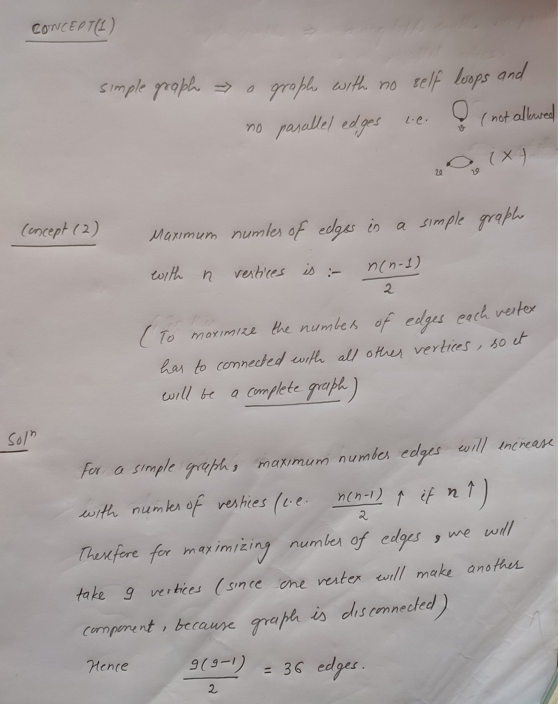 CONCEPT(1)
simple graph ⇒ a graph with no self loops and
no parallel edges i.e. (not allowed
(X)
Concept (2) Maximum number of edges in a simple graph
with n vertices is :- n(n-1)/2
(To maximize the number of edges each vertex
has to connected with all other vertices, so it
will be a complete graph)
Solⁿ
For a simple graph, maximum number edges will increase
with number of vertices (i.e. n(n-1)/2 ↑ if n ↑)
Therefore for maximizing number of edges, we will
take 9 vertices (since one vertex will make another
component, because graph is disconnected)
Hence 9(9-1)/2 = 36 edges.